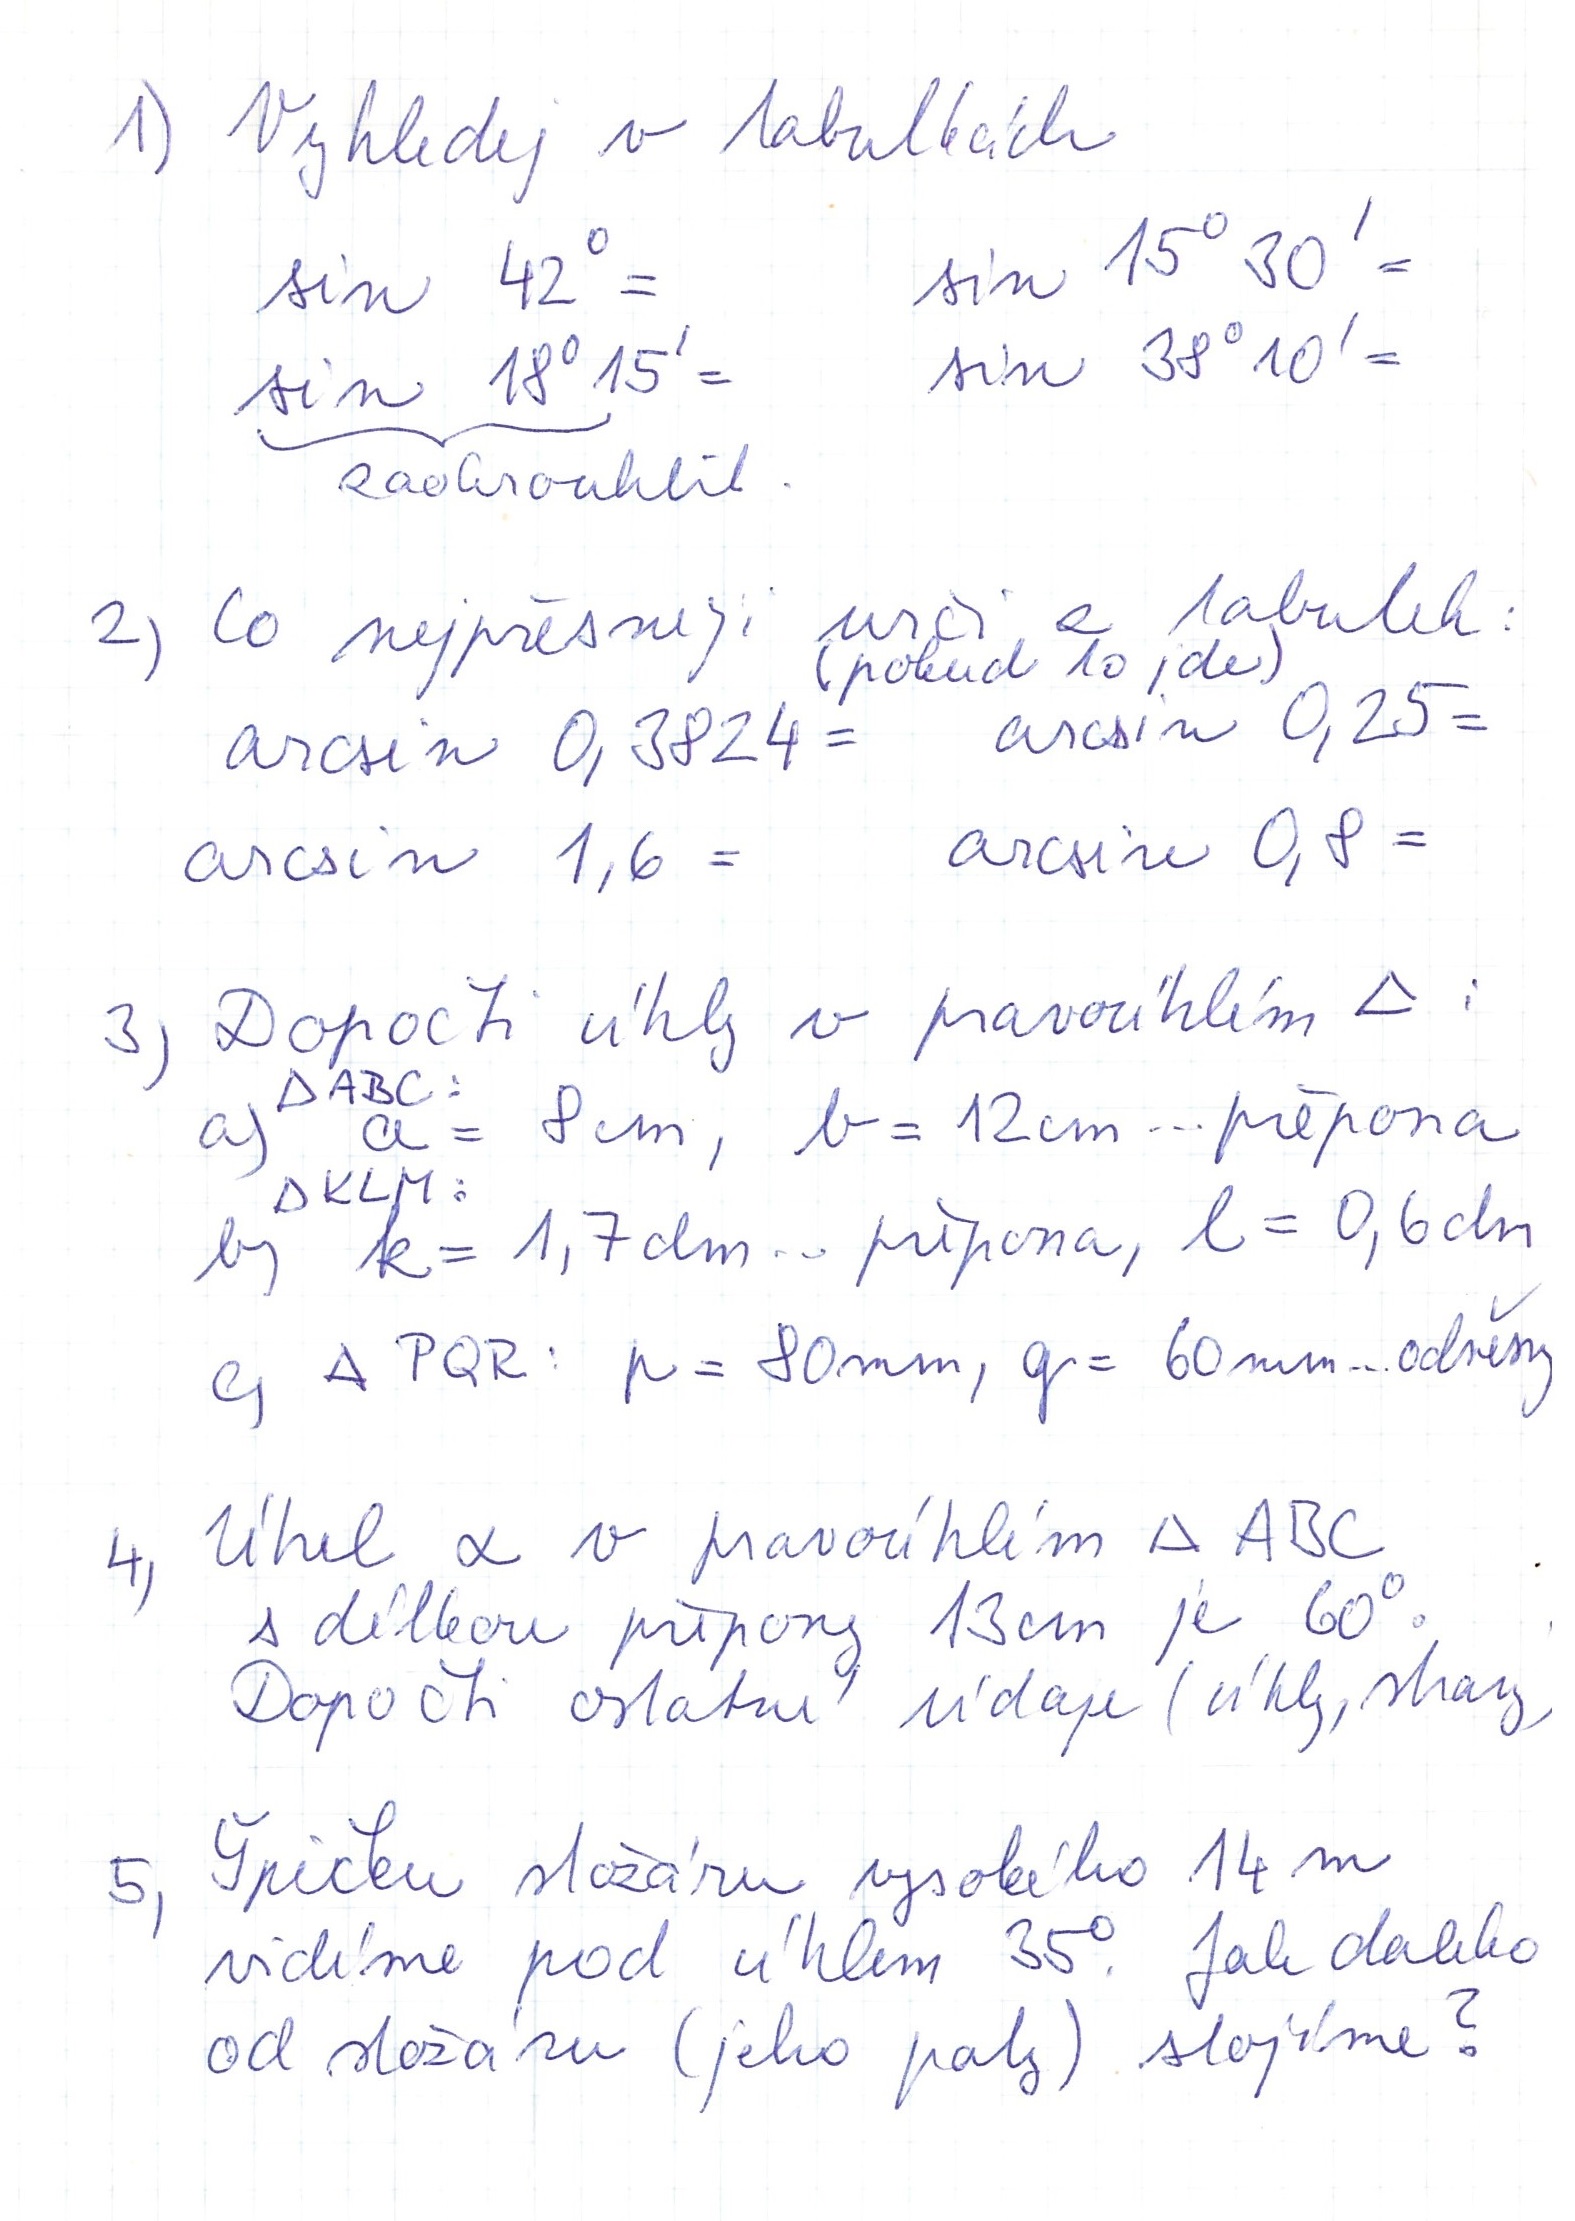 1) Vyhledej v tabulkách
sin 42° = sin 15° 30' =
sin 18° 15' = sin 38° 10' =
zaokrouhlit.
2) Co nejpřesněji urči z tabulek:
(pokud to jde)
arcsin 0,3824 = arcsin 0,25 =
arcsin 1,6 = arcsin 0,8 =
3) Dopočti úhly v pravoúhlém Δ:
Δ ABC:
a) a = 8cm, b = 12cm ... přepona
Δ KLM:
b) k = 1,7dm ... přepona, l = 0,6dm
c) Δ PQR: p = 80mm, q = 60mm ... odvěsny
4) Úhel α v pravoúhlém Δ ABC
s délkou přepony 13cm je 60°.
Dopočti ostatní údaje (úhly, strany)
5) Špičku stožáru vysokého 14 m
vidíme pod úhlem 35°. Jak daleko
od stožáru (jeho paty) stojíme?